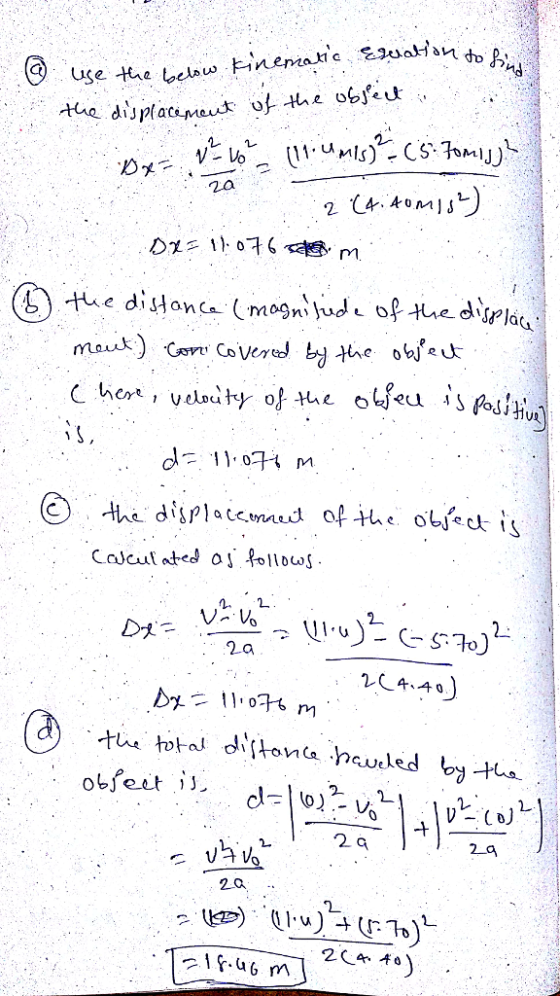 (a) use the below kinematic Equation to find
the displacement of the object.
Dx = V² - V₀² / 2a = (11.4 m/s)² - (5.70 m/s)² / 2 (4.40 m/s²)
Dx = 11.076 m
(b) the distance (magnitude of the displace
ment) covered by the object
(here, velocity of the object is positive)
is,
d = 11.076 m
(c) the displacement of the object is
calculated as follows.
Dx = V² - V₀² / 2a = (11.4)² - (-5.70)² / 2(4.40)
Dx = 11.076 m
(d) the total distance traveled by the
object is,
d = |(0)² - V₀² / 2a| + |V² - (0)² / 2a|
= V² + V₀² / 2a
= (11.4)² + (5.70)² / 2(4.40)
= 18.46 m